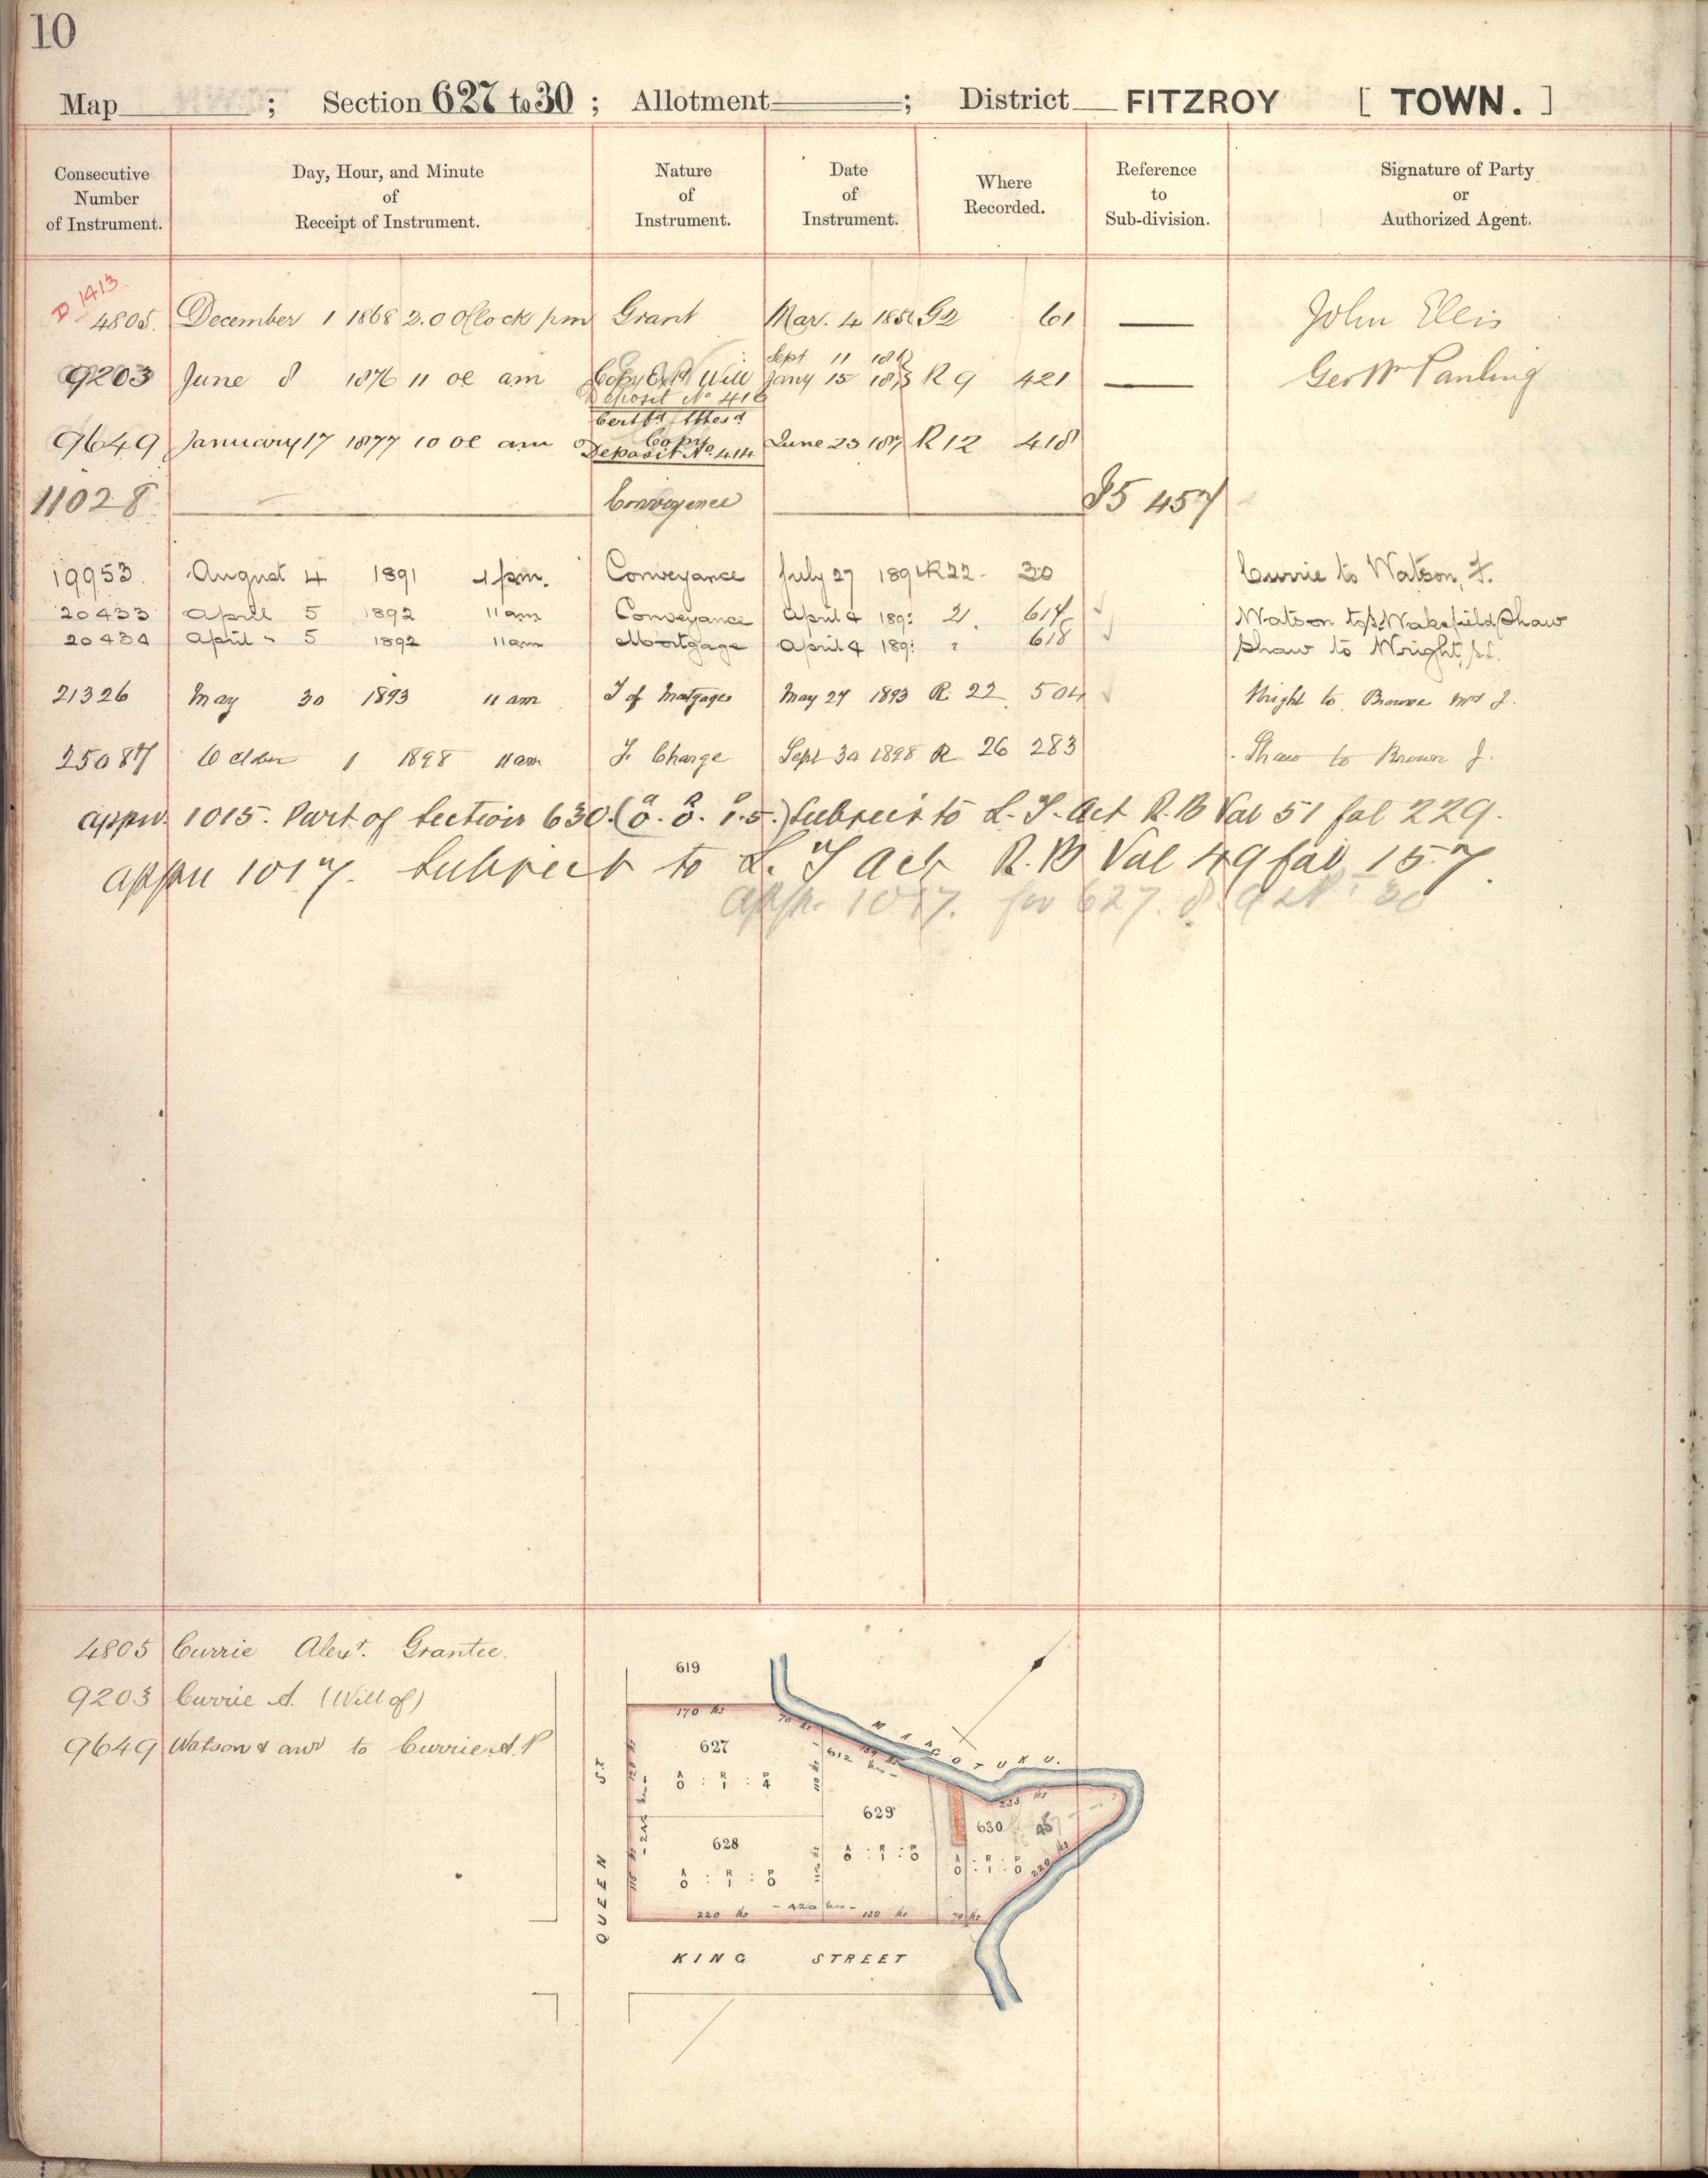 10
Map ; Section 627 to 30 ; Allotment ; District FITZROY [ TOWN. ]
Consecutive Number of Instrument.
Day, Hour, and Minute of Receipt of Instrument.
Nature of Instrument.
Date of Instrument.
Where Recorded.
Reference to Sub-division.
Signature of Party or Authorized Agent.
D 1413
4805. December 1 1868 2.0 Oclock pm Grant Mar. 4 185 G2 61 John Ellis
Sept 11
9203 June 8 1876 11 oc am Copy Will Jany 15 R 9 421 Geo Wm Panling
Deposit No 416
9649 January 17 1877 10 oc am Copy June 23 R12 418
Deposit No 414
11028 Conveyance 457
19953. August 4 1891 1 pm. Conveyance July 27 1891 R22 30 Currie to Watson, F.
20433 April 5 1892 11 am Conveyance April 4 189 21. 617 Watson to Wakefield Shaw
20434 April " 5 1892 11am Mortgage April 4 189 " 618 Shaw to Wright,
21326 May 30 1893 11 am T of Mortgage May 27 1893 R. 22 504 Wright to Browne Mrs J.
25087 October 1 1898 11am F. Charge Sept 30 1898 R 26 283 Shaw to Brown J.
appn. 1015. Part of Section 630. (0. 0. 1.5.) Subject to L. T. Act R.B Vol 51 fol 229.
appn 1017. Subject to L. T Act R.B Vol 49 fol 157.
appn. 1017. for 627. 8. 9 30
4805 Currie Alexr. Grantee.
9203 Currie A. (Will of)
9649 Watson & anr to Currie A. P
619
170 lks
70 lks
MAGOTUKU.
627
A R P
0 : 1 : 4
612 lks
629
A R P
0 : 1 : 0
235 lks
630
A R P
0 : 1 : 0
220 lks
628
A R P
0 : 1 : 0
220 lks - 420 lks - 130 lks 70 lks
QUEEN ST
KING STREET